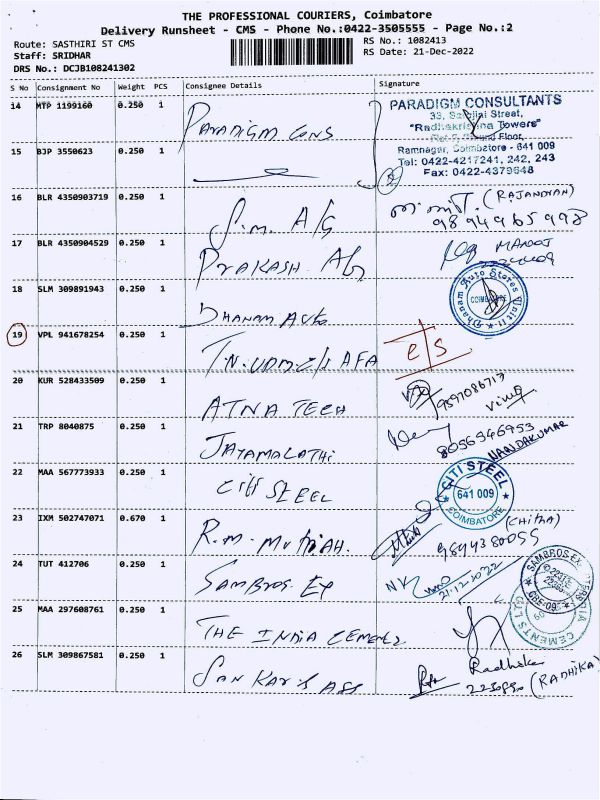 THE PROFESSIONAL COURIERS, Coimbatore
Delivery Runsheet - CMS - Phone No.:0422-3505555 - Page No.:2
Route: SASTHIRI ST CMS
RS No.: 1082413
Staff: SRIDHAR
RS Date: 21-Dec-2022
DRS No.: DCJB108241302
S No Consignment No Weight PCS Consignee Details Signature
14 MTP 1199160 0.250 1 PARADIGM CONS
PARADIGM CONSULTANTS
Street,
"Radhakrishna Towers"
Floor,
Ramnagar, Coimbatore - 641 009
Tel: 0422-4217241, 242, 243
Fax: 0422-4379648
15 BJP 3550623 0.250 1
16 BLR 4350903719 0.250 1 S.M. A/G (RAJANDYAN)
9894965998
17 BLR 4350904529 0.250 1 PRAKASH MANOJ
18 SLM 309891943 0.250 1 DHANAM AUTO
Dhanam Auto Stores Unit II
COIMBATORE
19 VPL 941678254 0.250 1 e/s
20 KUR 528433509 0.250 1 ATNA TECH 9597086717
21 TRP 8040875 0.250 1 JAYAMALATHI 8056946953
NANDAKUMAR
22 MAA 567773933 0.250 1 CITI STEEL
CITI STEEL
641 009
COIMBATORE
23 IXM 502747071 0.670 1 R.M. MUTHIAH. (CHITRA)
9894380055
24 TUT 412706 0.250 1 SAMBROS EX
21.12.2022
SAMBROS EX
25 MAA 297608761 0.250 1 THE INDIA CEMENTS
CEMENTS LTD
26 SLM 309867581 0.250 1 Radhika
(RADHIKA)